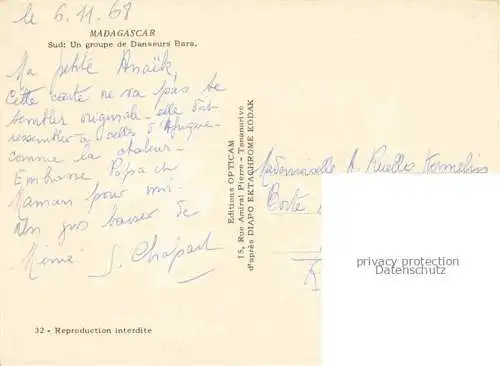 le 6.11.69
MADAGASCAR
Sud: Un groupe de Danseurs Bara.
Ma petite Anaïck,
Cette carte ne va pas te
sembler originale - elle doit
ressembler à celles d'Afrique -
comme la chaleur -
Embrasse Papa et
Maman pour moi -
Un gros baiser de
Mémé J. Chapart
32 - Reproduction interdite
Editions OPTICAM
15, Rue Amiral Pierre - Tananarive
d'après DIAPO EKTACHROME KODAK
Mademoiselle A. Ruello
Boite
privacy protection
Datenschutz